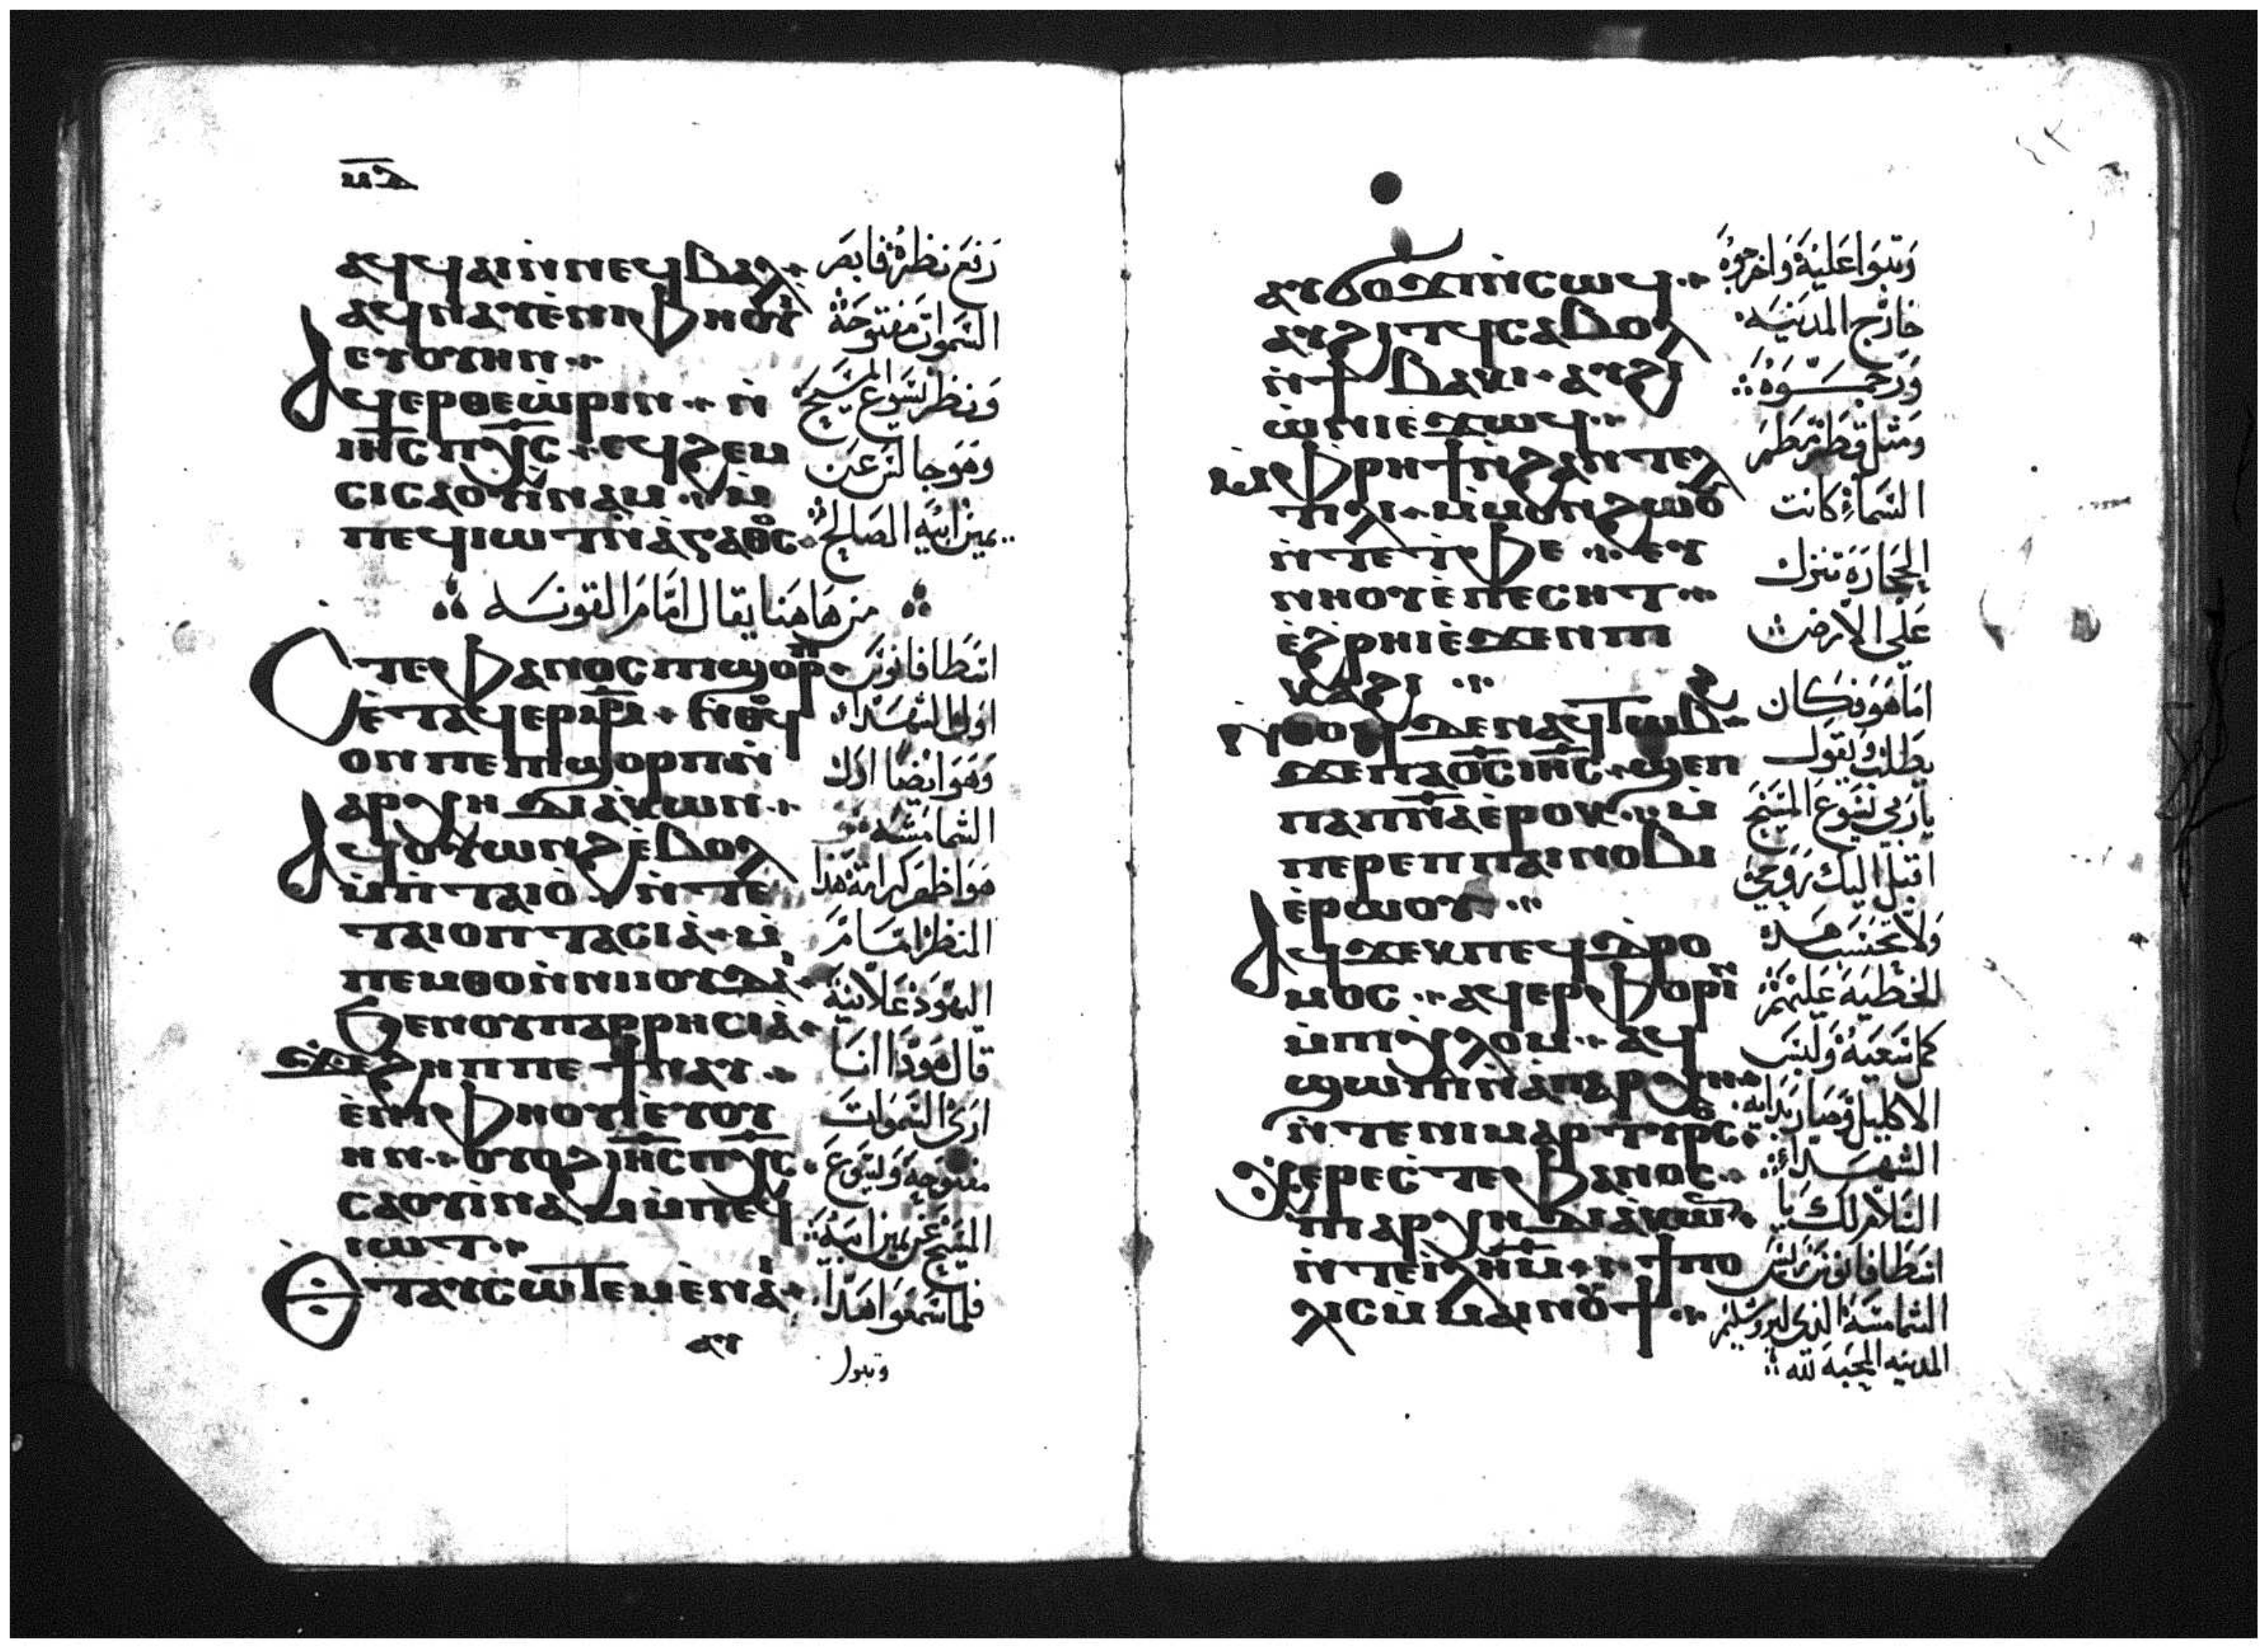 ⲙⲇ
ⲁϥϥⲁⲓⲛ̀ⲛⲉϥⲃⲁⲗ
ⲁϥⲛⲁⲩⲉ̀ⲛⲓⲫⲏⲟⲩⲓ̀
ⲉⲩⲟⲩⲏⲛ
ⲁϥⲉⲣⲑⲉⲱ̀ⲣⲓⲛ ⲛ̀
ⲓⲏ̅ⲥ ⲡⲭ̅ⲥ ⲉϥϩⲉⲙ
ⲥⲓⲥⲁⲟⲩⲓ̀ⲛⲁⲙ ⲙ̀
ⲡⲉϥⲓⲱⲧⲛ̀ⲁ̀ⲅⲁⲑⲟⲥ
رفع نظره فابصر
السموات مفتوحة
ونظر يسوع المسيح
وهو جالس عن
يمين ابيه الصالح
من هاهنا يقال امام القونسه
ⲥⲧⲉⲫⲁⲛⲟⲥⲡⲓϣⲟⲣⲡ
ⲉ̀ⲧⲁϥⲉⲣⲙ̅ⲣ̅ ⲛ̀ⲑⲟϥ
ⲟⲛⲡⲉⲡⲓϣⲟⲣⲡⲛ̀
ⲁⲣⲭⲏⲇⲓⲁ̀ⲕⲱⲛ
ⲁϥⲟⲩⲱⲛϩⲉ̀ⲃⲟⲗ
ⲙ̀ⲡ̀ⲧⲁⲓⲟ̀ ⲛ̀ⲧⲉ
ⲧⲁⲓⲟⲡⲧⲁⲥⲓⲁ̀ ⲙ̀
ⲡⲉⲙⲑⲟⲛ̀ⲛⲓⲓⲟⲩⲇⲁⲓ̀
ϧⲉⲛⲟⲩⲡⲁⲣⲣⲏⲥⲓⲁ̀
ϫⲉϩⲏⲡⲡⲉϯⲛⲁⲩ
ⲉ̀ⲛⲓⲫⲏⲟⲩⲓ̀ⲉⲩⲟⲩ
ⲏⲛ ⲟⲩⲟϩⲓⲏ̅ⲥ ⲡⲭ̅ⲥ
ⲥⲁⲟⲩⲓ̀ⲛⲁⲙⲙ̀ⲡⲉϥ
ⲓⲱⲧ
ⲉⲧⲁⲩⲥⲱⲧⲉⲙⲉ̀ⲛⲁⲓ̀
ⲁⲩ
اسطافانوس
اول الشهداء
وهو ايضا اول
الشمامسة
هو اظهر كرامة هذا
المنظر امام
اليهود علانية
قال هوذا انا
ارى السموات
مفتوحة ويسوع
المسيح عن يمين ابيه
فلما سمعوا هذا
وثبوا
ⲁⲩϭⲟϫⲓⲛ̀ⲥⲱϥ
ⲁⲩϩⲓⲧϥⲥⲁⲃⲟⲗ
ⲛ̀ϯⲃⲁⲕⲓ ⲁⲩϩⲓ
ⲱ̀ⲛⲓⲉ̀ϫⲱϥ
ⲙ̀ⲫⲣⲏϯⲛ̀ϩⲁⲛⲧⲉⲗ
ⲧⲓⲗⲓ ⲙ̀ⲙⲟⲩⲛϩⲱⲟⲩ
ⲛ̀ⲧⲉⲧ̀ⲫⲉ ⲉⲩ
ⲛⲏⲟⲩⲉ̀ⲡⲉⲥⲏⲧ
ⲉ̀ϩⲣⲏⲓⲉ̀ϫⲉⲛⲡⲓ
ⲕⲁϩⲓ
ⲛ̀ⲑⲟϥⲇⲉⲛⲁϥⲧⲱⲃϩ
ϫⲉⲡⲁⲟ̅ⲥ ⲓⲏ̅ⲥ ϣⲉⲡ
ⲡⲁⲡ̅ⲛ̅ⲁ̅ⲉ̀ⲣⲟⲕ ⲙ̀
ⲡⲉⲣⲉⲡⲡⲁⲓⲛⲟⲃⲓ
ⲉ̀ⲣⲱⲟⲩ
ⲁϥϫⲉⲕⲡⲉϥⲇⲣⲟ
ⲙⲟⲥ ⲁϥⲉⲣⲫⲟⲣⲓⲛ
ⲙ̀ⲡⲓⲭ̀ⲗⲟⲙ ⲁϥ
ϣⲱⲡⲓⲛ̀ⲁⲡⲁⲣⲭⲏ
ⲛ̀ⲧⲉⲛⲓⲙⲁⲣⲧⲩⲣⲟⲥ
ⲭⲉⲣⲉⲥ̀ⲧⲉⲫⲁⲛⲟⲥ
ⲡⲓⲁⲣⲭⲏⲇⲓⲁ̀ⲕⲱⲛ
ⲛ̀ⲧⲉⲓ̅ⲗ̅ⲏ̅ⲙ̅ ϯⲡⲟ
ⲗⲓⲥⲙ̀ⲙⲁⲓⲛⲟⲩϯ
وثبوا عليه واخرجوه
خارج المدينه
ورجموه
ومثل قطر مطر
السماء كانت
الحجارة تنزل
على الارض
اما هو فكان
يطلب ويقول
ياربي يسوع المسيح
اقبل اليك روحي
ولا تحسب هذه
الخطية عليهم
كمل سعيه ولبس
الاكليل وصار بدايه
الشهداء
السلام لك يا
اسطافانوس رئيس
الشمامسة الذي ليروشليم
المدينه المحبه لله